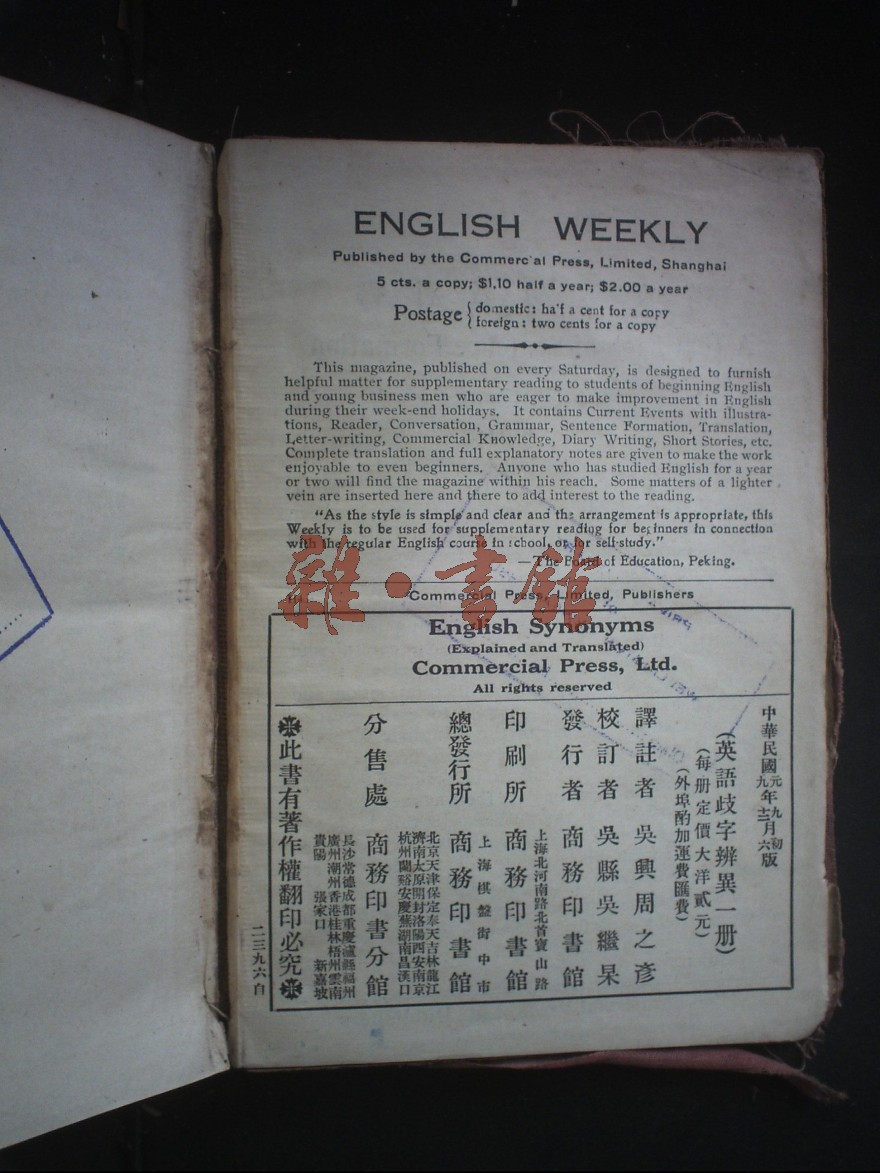 ENGLISH WEEKLY
Published by the Commerc al Press, Limited, Shanghai
5 cts. a copy; $1.10 half a year; $2.00 a year
Postage { domestic: ha'f a cent for a copy
foreign: two cents for a copy
This magazine, published on every Saturday, is designed to furnish
helpful matter for supplementary reading to students of beginning English
and young business men who are eager to make improvement in English
during their week-end holidays. It contains Current Events with illustra-
tions, Reader, Conversation, Grammar, Sentence Formation, Translation,
Letter-writing, Commercial Knowledge, Diary Writing, Short Stories, etc.
Complete translation and full explanatory notes are given to make the work
enjoyable to even beginners. Anyone who has studied English for a year
or two will find the magazine within his reach. Some matters of a lighter
vein are inserted here and there to add interest to the reading.
"As the style is simple and clear and the arrangement is appropriate, this
Weekly is to be used for supplementary reading for beginners in connection
with the regular English course in school, or for self-study."
—The Board of Education, Peking.
雜·書館
Commercial Press, Limited, Publishers
English Synonyms
(Explained and Translated)
Commercial Press, Ltd.
All rights reserved
中華民國元年九月初版
九年十二月六版
(英語歧字辨異一册)
(每册定價大洋貳元)
(外埠酌加運費匯費)
譯註者 吳興周之彥
校訂者 吳縣吳繼杲
發行者 商務印書館
上海北河南路北首寶山路
印刷所 商務印書館
上海棋盤街中市
總發行所 商務印書館
北京天津保定奉天吉林龍江
濟南太原開封洛陽西安南京
杭州蘭谿安慶蕪湖南昌漢口
分售處 商務印書分館
長沙常德成都重慶瀘縣福州
廣州潮州香港桂林梧州雲南
貴陽 張家口 新嘉坡
此書有著作權翻印必究
二三九六白